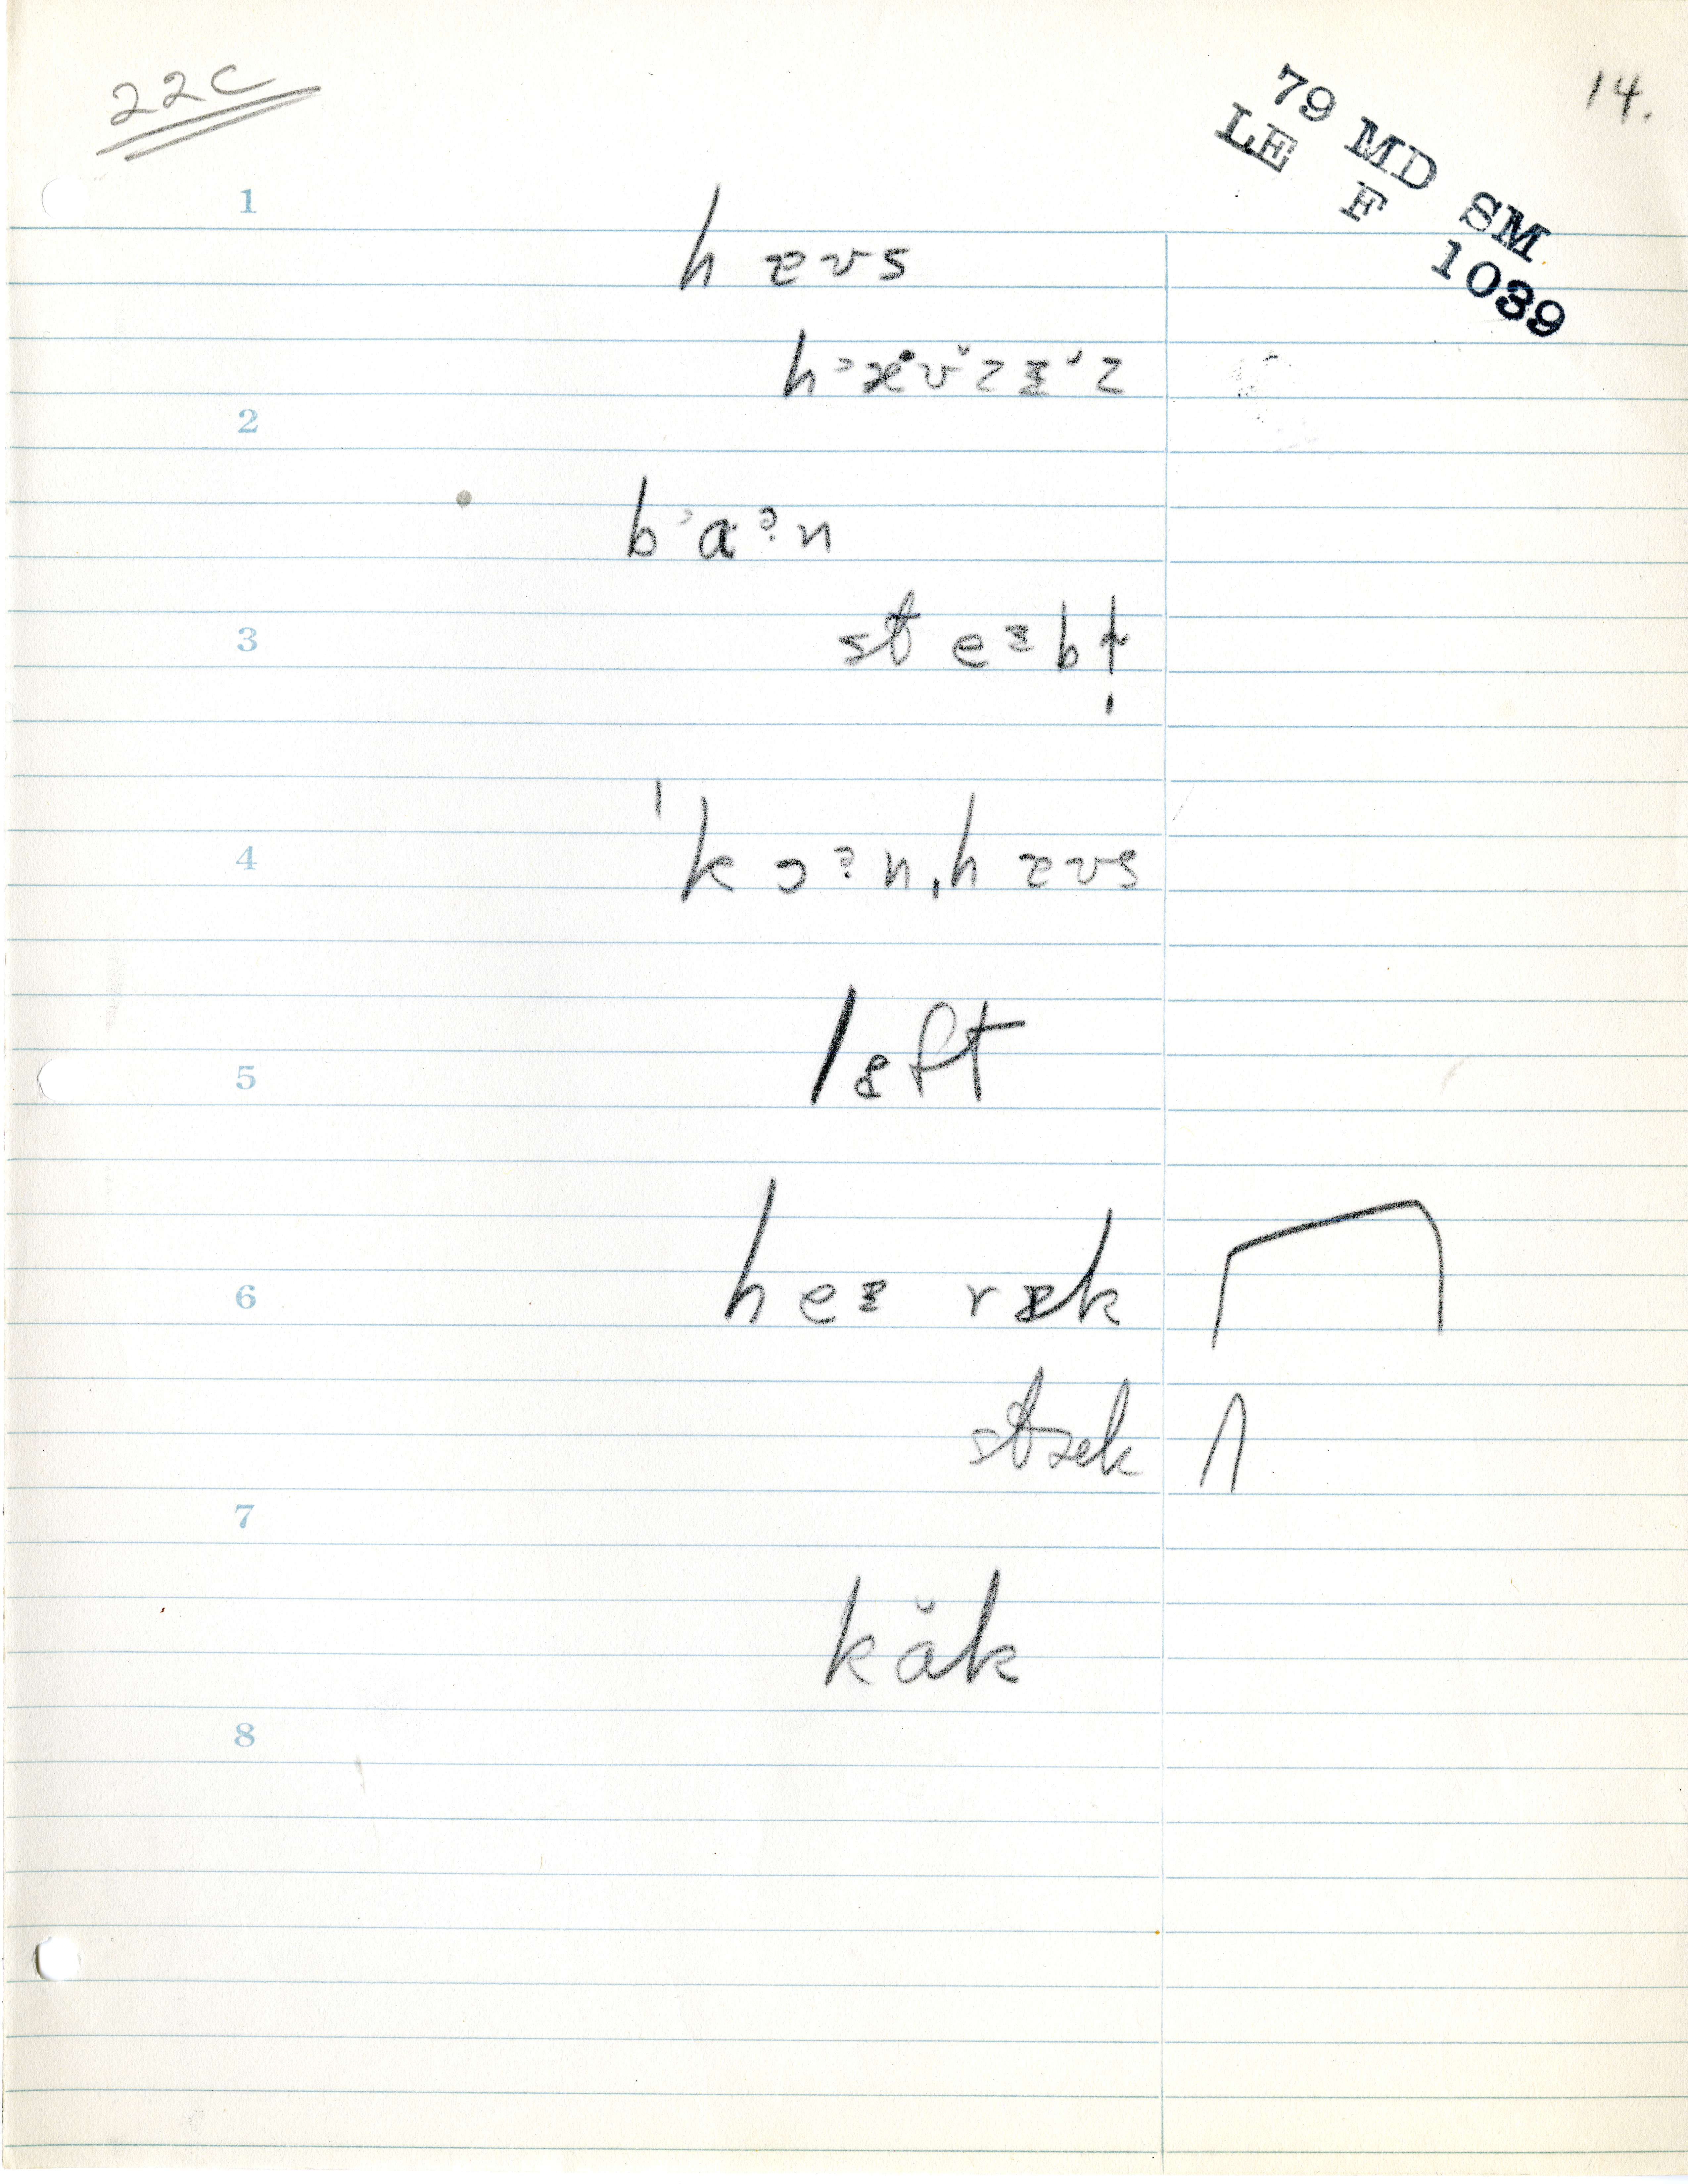 22C
14.
79 MD SM
LE F 1039
1
h æʊs
hᵊæʊ̆zɪ̆z
2
bᵊaˀn
3
st eɪb ɫ̩
4
ˈkɔˀn,hæʊs
5
lɛft
6
heɪ ræk
stæk
7
kăk
8